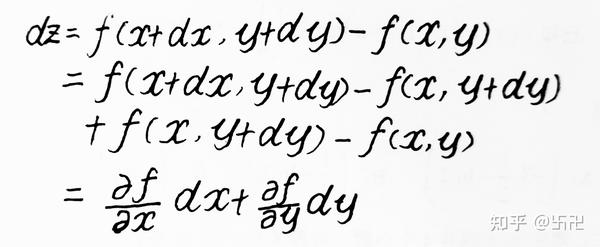 dz = f(x+dx, y+dy) - f(x,y)
= f(x+dx, y+dy) - f(x, y+dy)
+ f(x, y+dy) - f(x,y)
= ∂f/∂x dx + ∂f/∂y dy
知乎 @卐卍